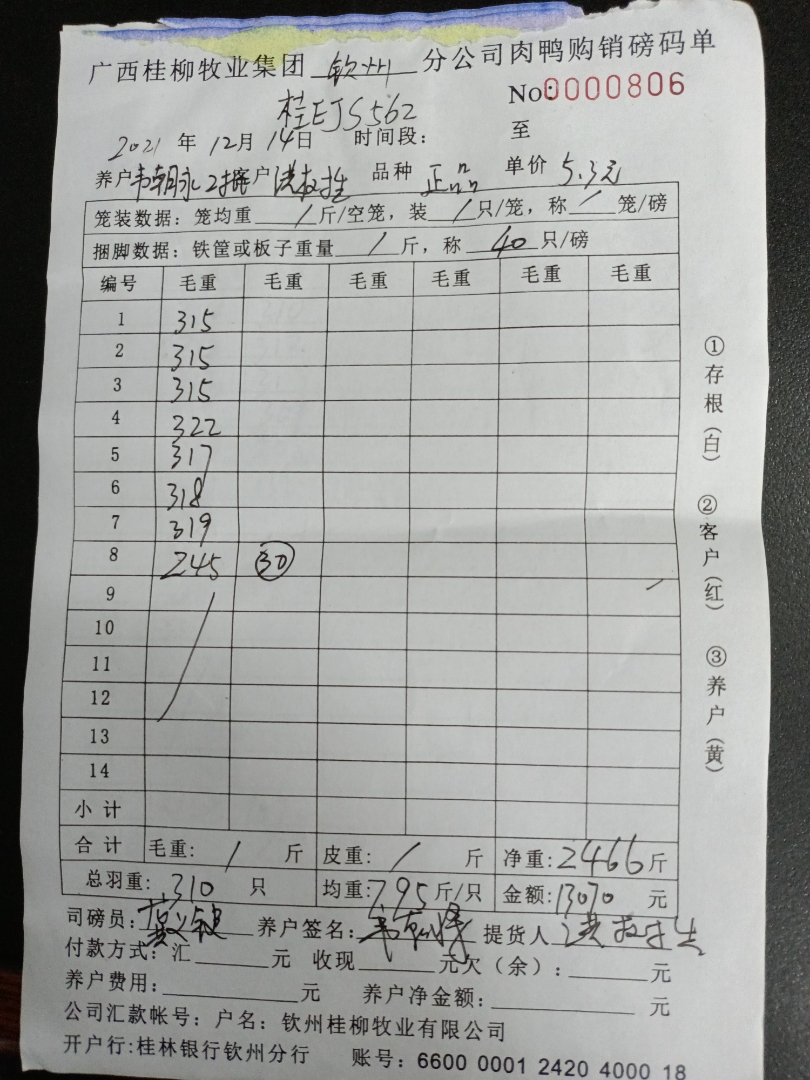 广西桂柳牧业集团 钦州 分公司肉鸭购销磅码单
No:0000806
桂EJS562
2021 年 12月 14日 时间段: 至
养户 韦朝永 客户 洪 品种 正品 单价 5.3元
笼装数据: 笼均重 / 斤/空笼, 装 / 只/笼, 称 / 笼/磅
捆脚数据: 铁筐或板子重量 / 斤, 称 40 只/磅
编号 毛重 毛重 毛重 毛重 毛重 毛重
1 315
2 315
3 315
4 322
5 317
6 318
7 319
8 245 30
9
10
11
12
13
14
小计
合计 毛重: / 斤 皮重: / 斤 净重: 2466 斤
总羽重: 310 只 均重: 7.95 斤/只 金额: 13070 元
司磅员: 养户签名: 韦 提货人 洪
付款方式: 汇 元 收现 元欠(余): 元
养户费用: 元 养户净金额: 元
公司汇款帐号: 户名: 钦州桂柳牧业有限公司
开户行:桂林银行钦州分行 账号: 6600 0001 2420 4000 18
①存根(白) ②客户(红) ③养户(黄)